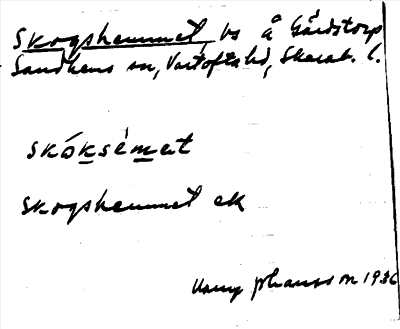 Skogshemmet, ls å Gårdstorp
Sandhems sn, Vartofta hd, Skarab. l.
skók̲sém̲et
Skogshemmet ek
Harry Jhansson 1936